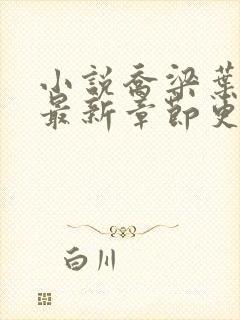 小說喬梁葉
最新章節更
白川